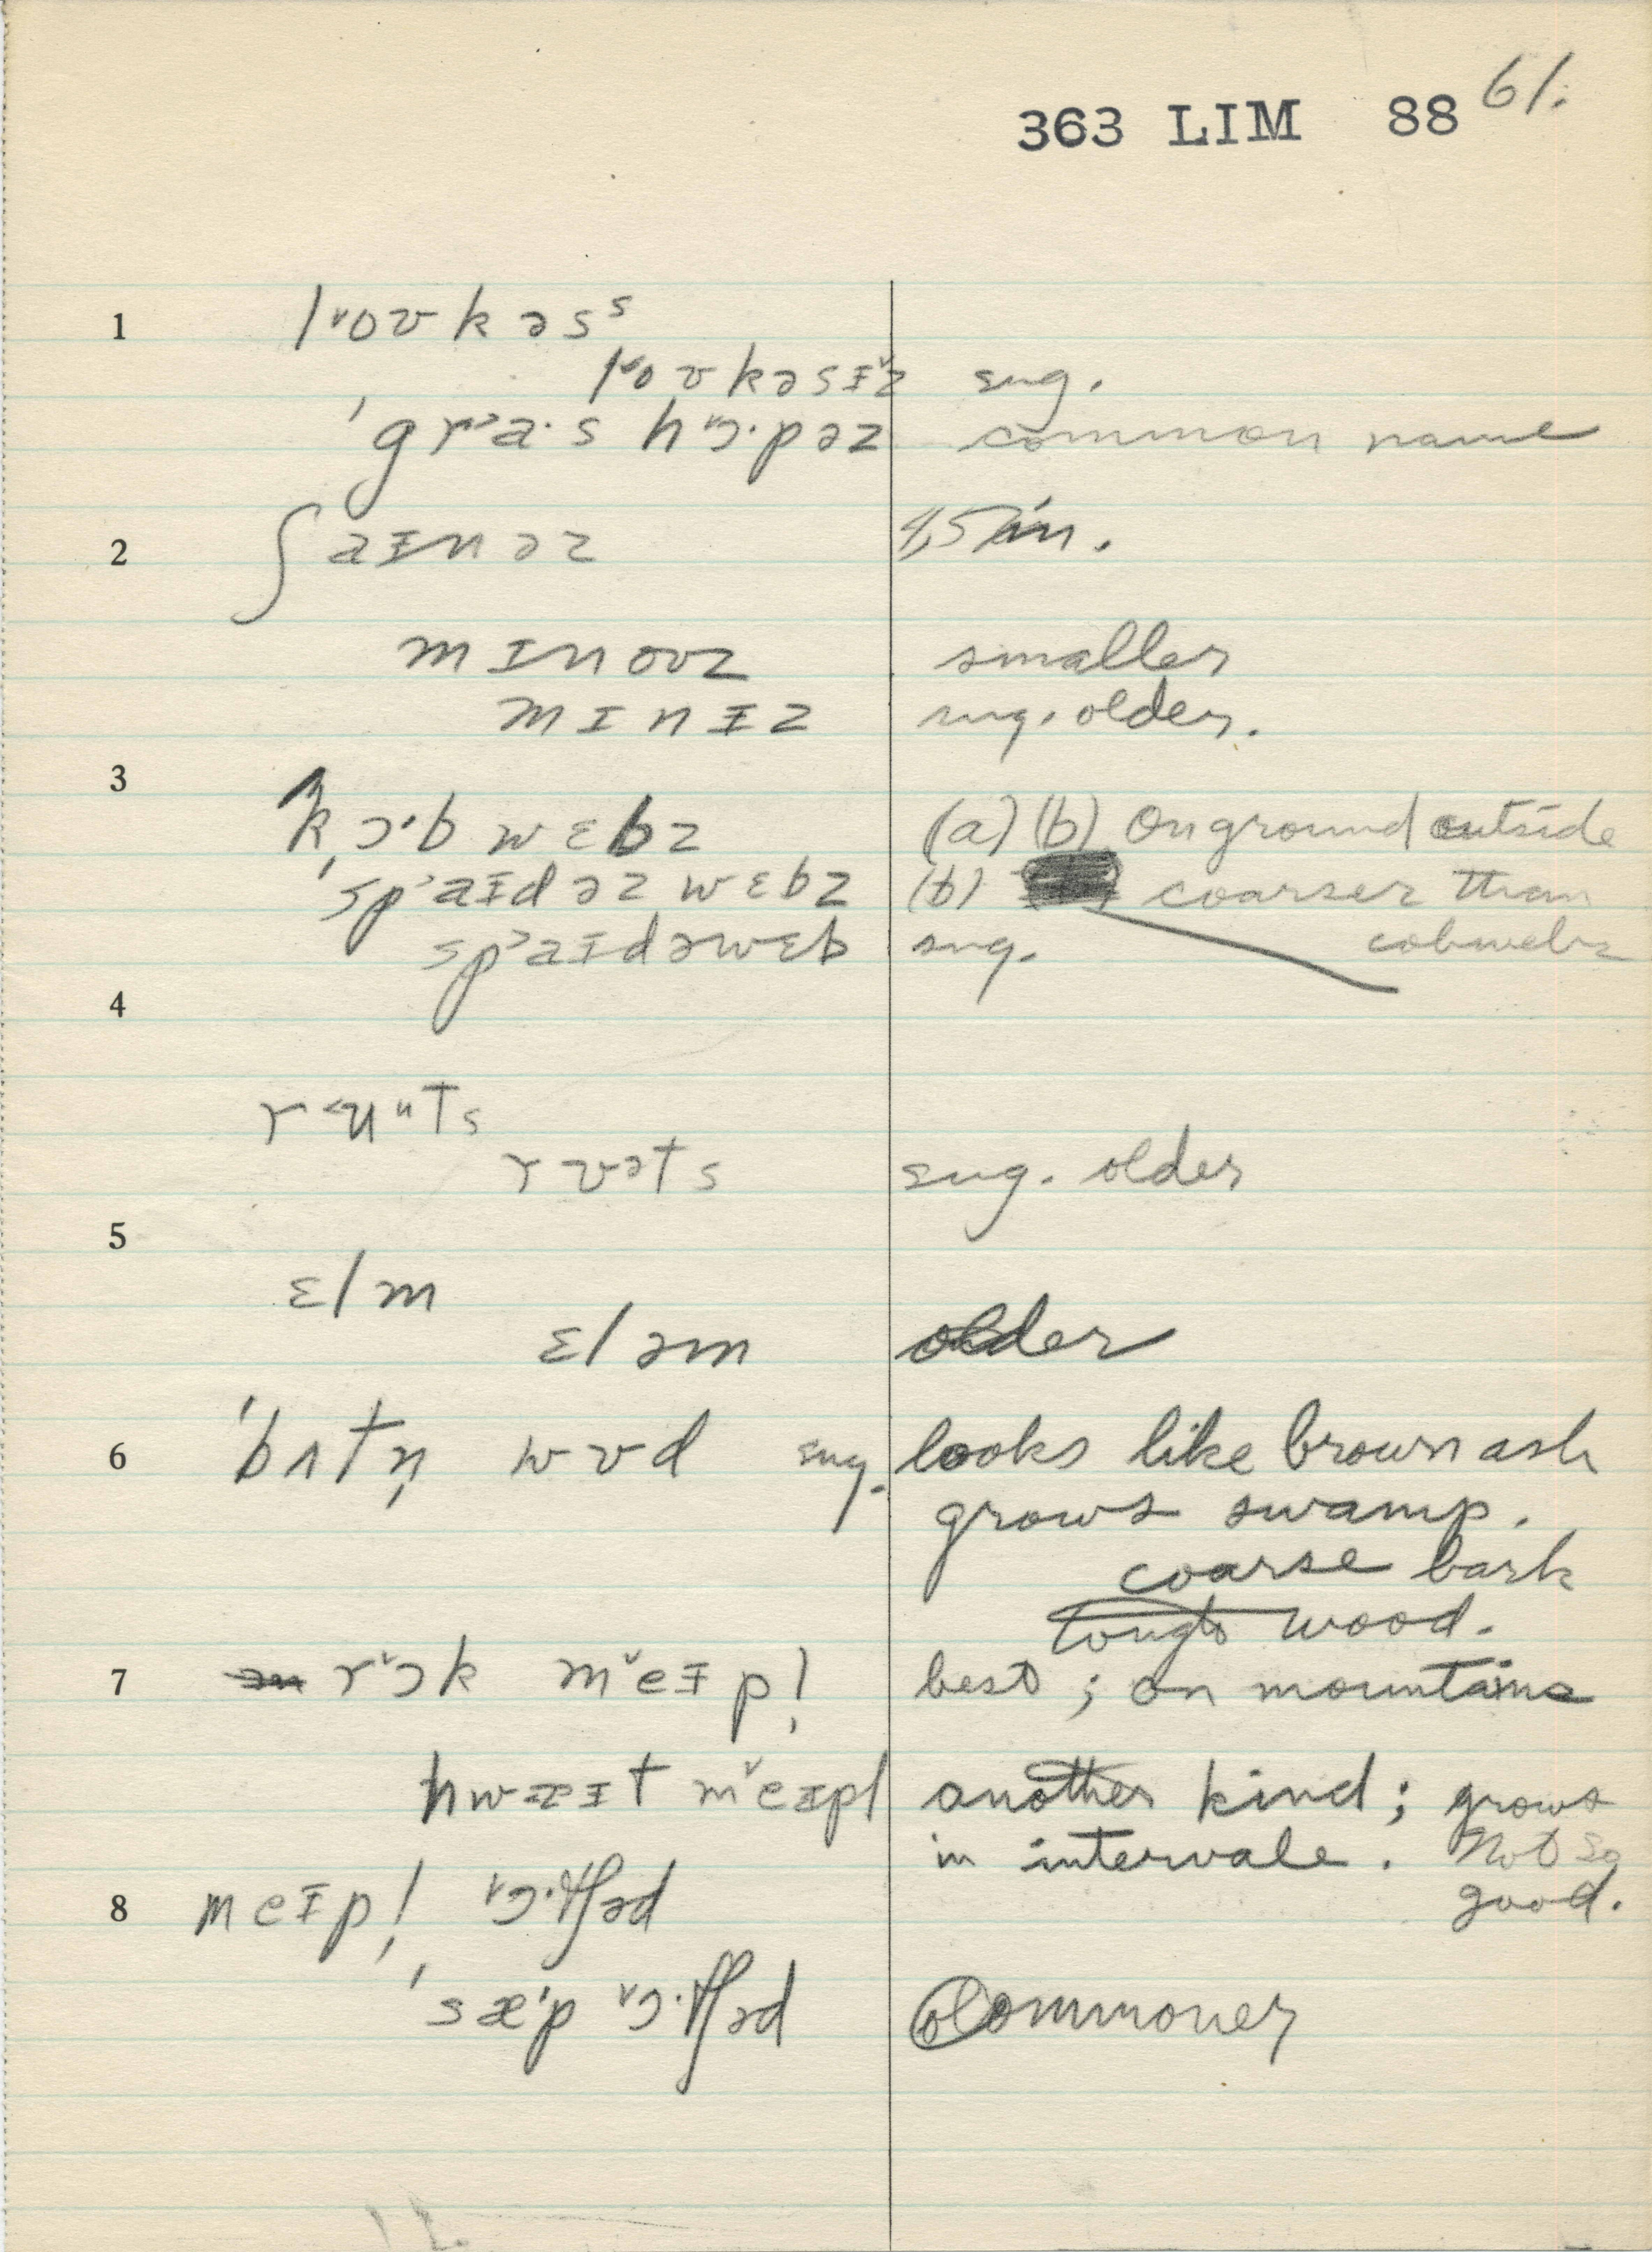 363 LIM 88 61.
1 l˅oʊkəsˢ
l˅oʊkəsᵻ˅z sug.
ˈgr˃a·s h˅ɔ·pəz common name
2 ʃaᵻnəz 4,5 in.
mɪnoʊz smaller
mɪnᵻz sug. older.
3 kɔ·b wɛbz (a) (b) On ground outside
ˈsp˃aᵻdəz wɛbz (b) coarser than
cobwebs
sp˃aᵻdəwɛb sug.
4 r˂uᵘts
rʊᵊts sug. older
5 ɛlm
ɛləm older
6 ˈbʌtn̩ wʊd sug. looks like brown ash
grows swamp.
coarse bark
tough wood.
7 r˅ɔk m˅eᵻpl̩ best ; on mountains
hwæɪt m˅eᵻpl another kind ; grows
in intervale. Not so
good.
8 meᵻpl̩ ˅ɔ·tʃəd
ˈsæ'p ˅ɔ·tʃəd Commoner